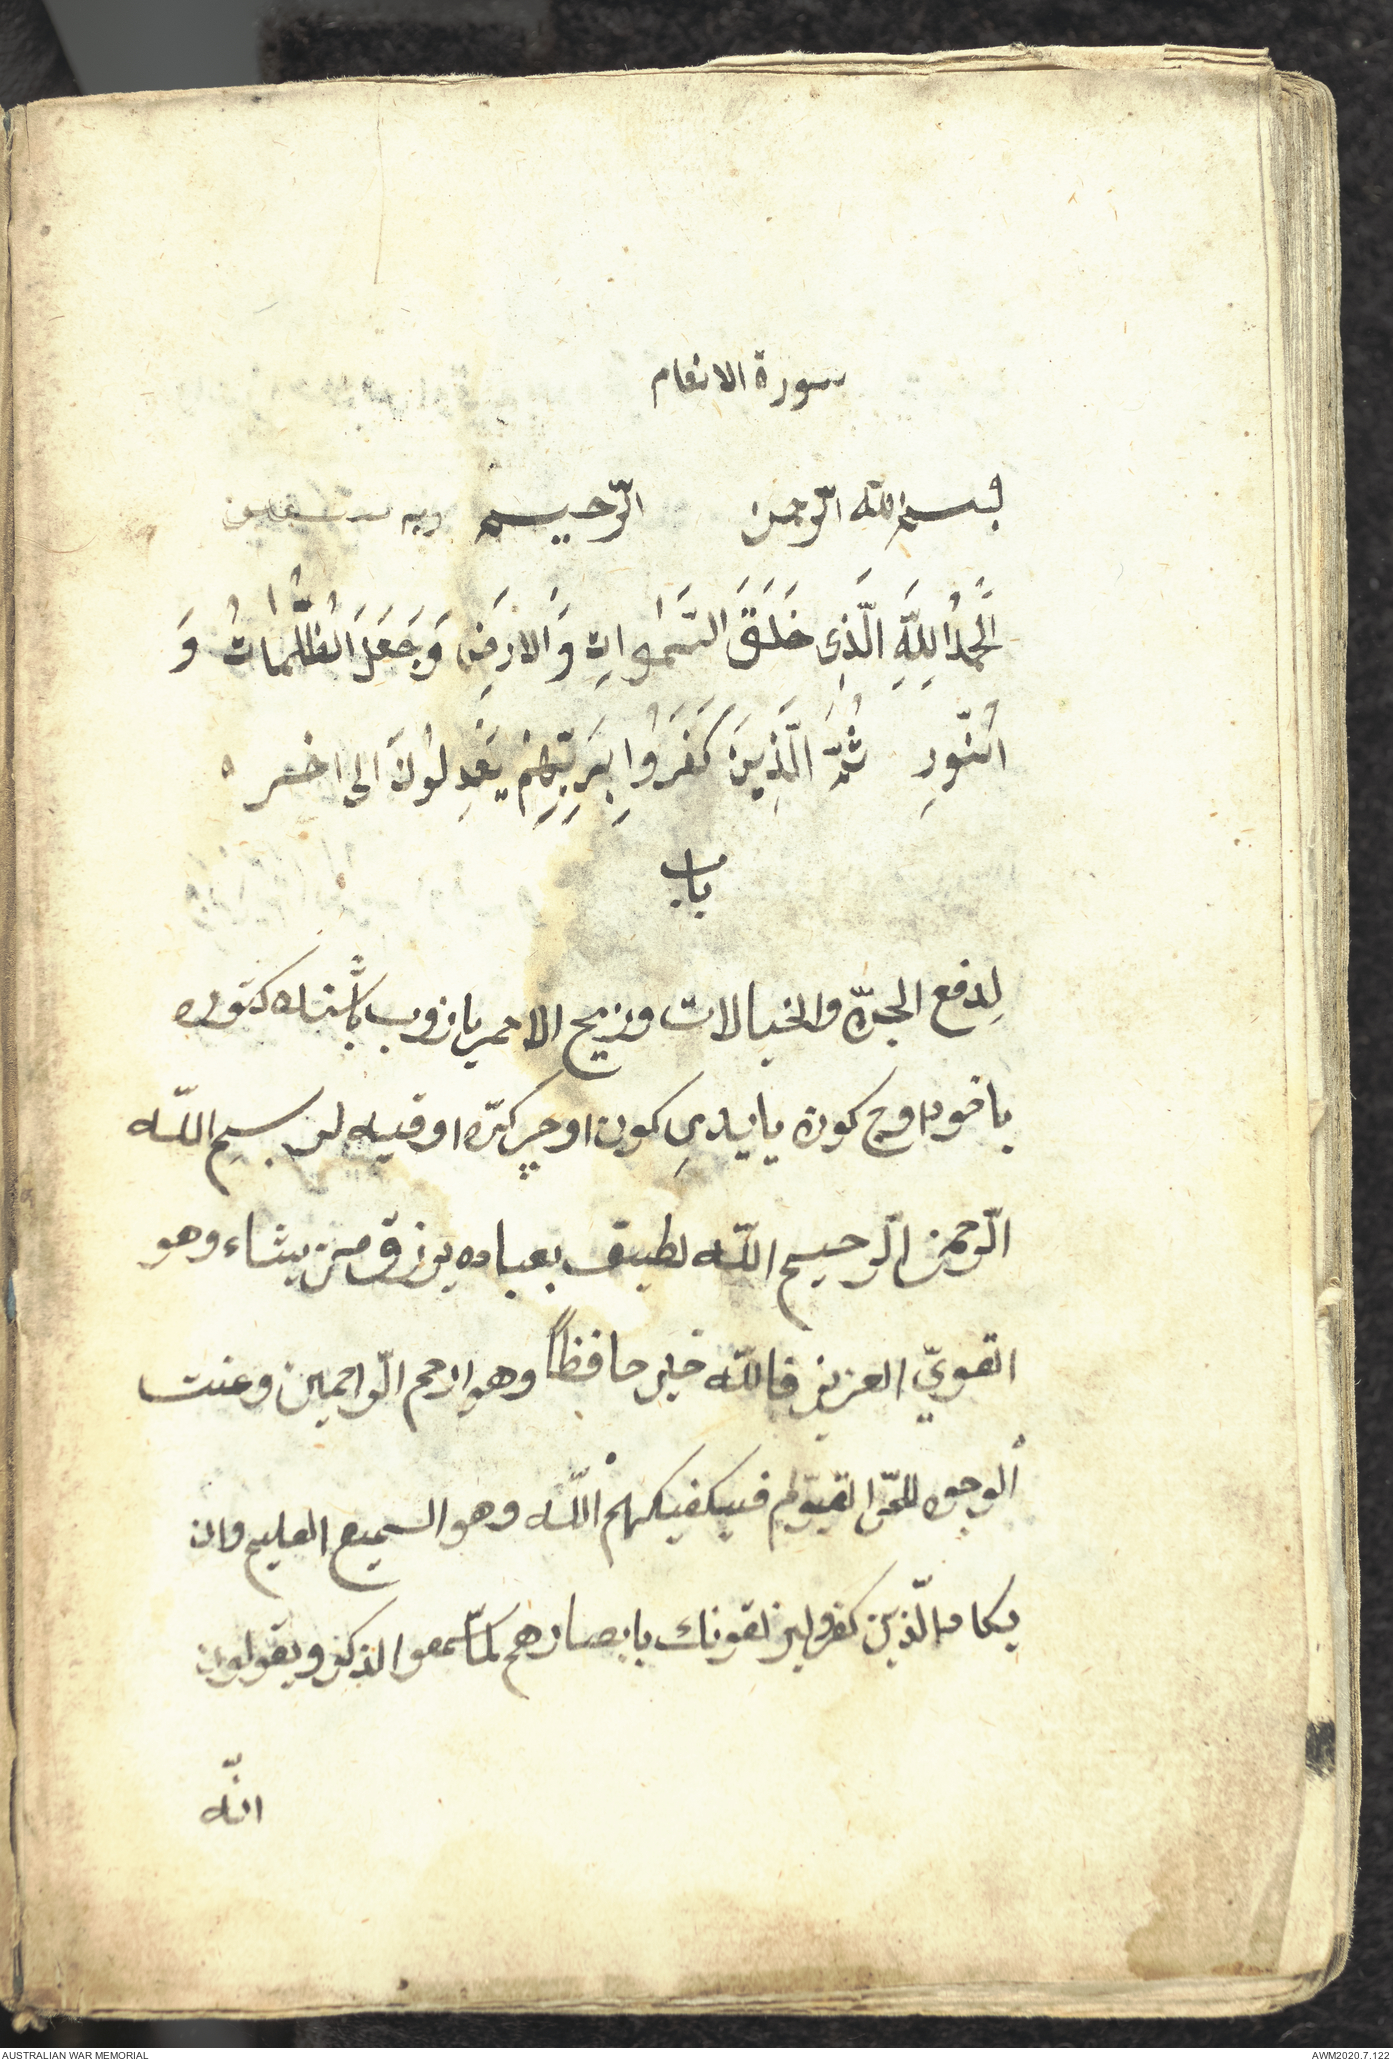 سورة الانعام
بسم الله الرّحمن الرّحيم وبه نستعين
اَلْحَمْدُ لِلّٰهِ الَّذِى خَلَقَ السَّمٰوَاتِ وَالارَضِ وَجَعَلَ الظُّلُمَاتُ وَ
اَلنّورِ ثُمَّ الَّذِينَ كَفَرَوُا بِرَبِّهِمْ يَعْدِلُونَ الى اخر ه
باب
لِدفع الجدّه والخيالات وزيح الاحمر يازوب باشنده كتوره
ياخود اوج كون يايدىِ كون اوچر كرّه اوقيه لر بسم اللّه
الرّحمن الرّحيم اللّه لطيف بعباده يرزق من يشاء وهو
القوىّ العزيز فاللّه خير حافظاً وهو ارحم الرّاحمين وعنت
اْلوجوه للحىّ القيّوم فسيكفيكهمْ اللّه وهو السميع العليم وان
يكاد الّذين كفرو ليزلقونك بابصارهم لمّا سمعوا الذكر ويقولون
انّه
AUSTRALIAN WAR MEMORIAL
AWM2020.7.122